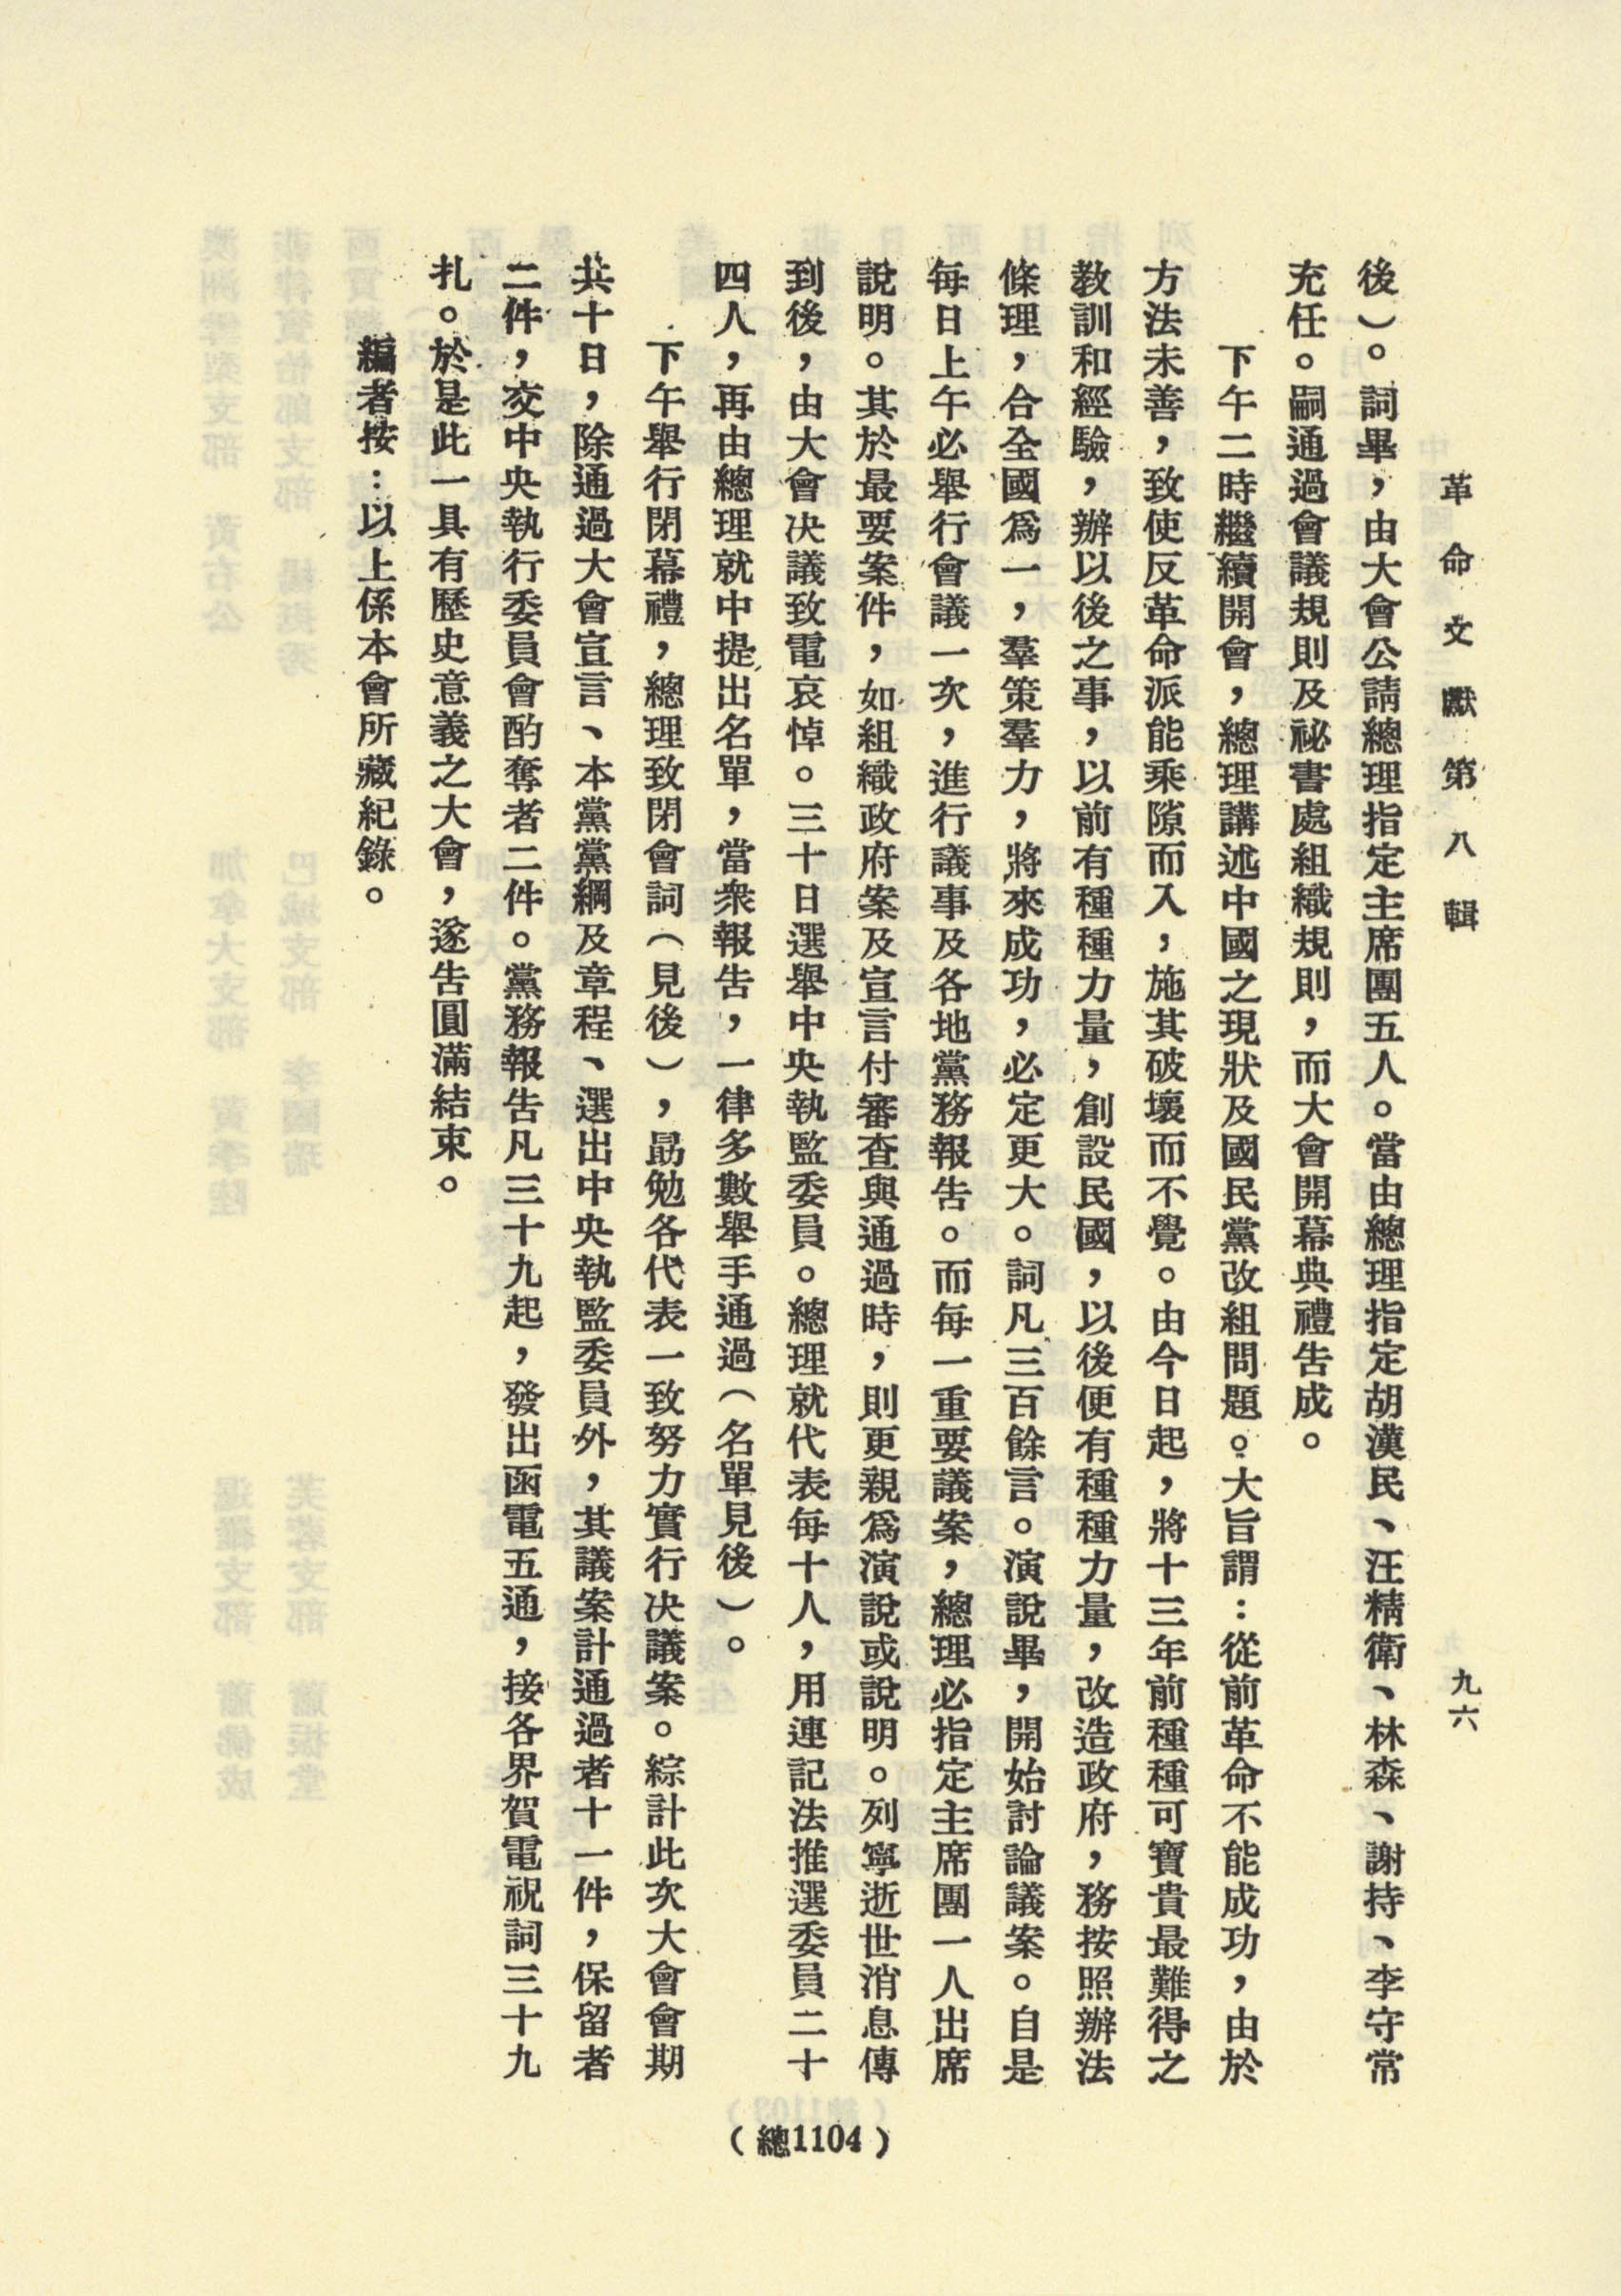 革命文獻第八輯
九六
後）。詞畢，由大會公請總理指定主席團五人。當由總理指定胡漢民、汪精衛、林森、謝持、李守常
充任。嗣通過會議規則及祕書處組織規則，而大會開幕典禮告成。
下午二時繼續開會，總理講述中國之現狀及國民黨改組問題。大旨謂：從前革命不能成功，由於
方法未善，致使反革命派能乘隙而入，施其破壞而不覺。由今日起，將十三年前種種可寶貴最難得之
教訓和經驗，辦以後之事，以前有種種力量，創設民國，以後便有種種力量，改造政府，務按照辦法
條理，合全國爲一，羣策羣力，將來成功，必定更大。詞凡三百餘言。演說畢，開始討論議案。自是
每日上午必舉行會議一次，進行議事及各地黨務報告。而每一重要議案，總理必指定主席團一人出席
說明。其於最要案件，如組織政府案及宣言付審查與通過時，則更親爲演說或說明。列寧逝世消息傳
到後，由大會决議致電哀悼。三十日選舉中央執監委員。總理就代表每十人，用連記法推選委員二十
四人，再由總理就中提出名單，當衆報告，一律多數舉手通過（名單見後）。
下午舉行閉幕禮，總理致閉會詞（見後），勗勉各代表一致努力實行决議案。綜計此次大會會期
共十日，除通過大會宣言、本黨黨綱及章程、選出中央執監委員外，其議案計通過者十一件，保留者
二件，交中央執行委員會酌奪者二件。黨務報告凡三十九起，發出函電五通，接各界賀電祝詞三十九
扎。於是此一具有歷史意義之大會，遂告圓滿結束。
編者按：以上係本會所藏紀錄。
（總1104）